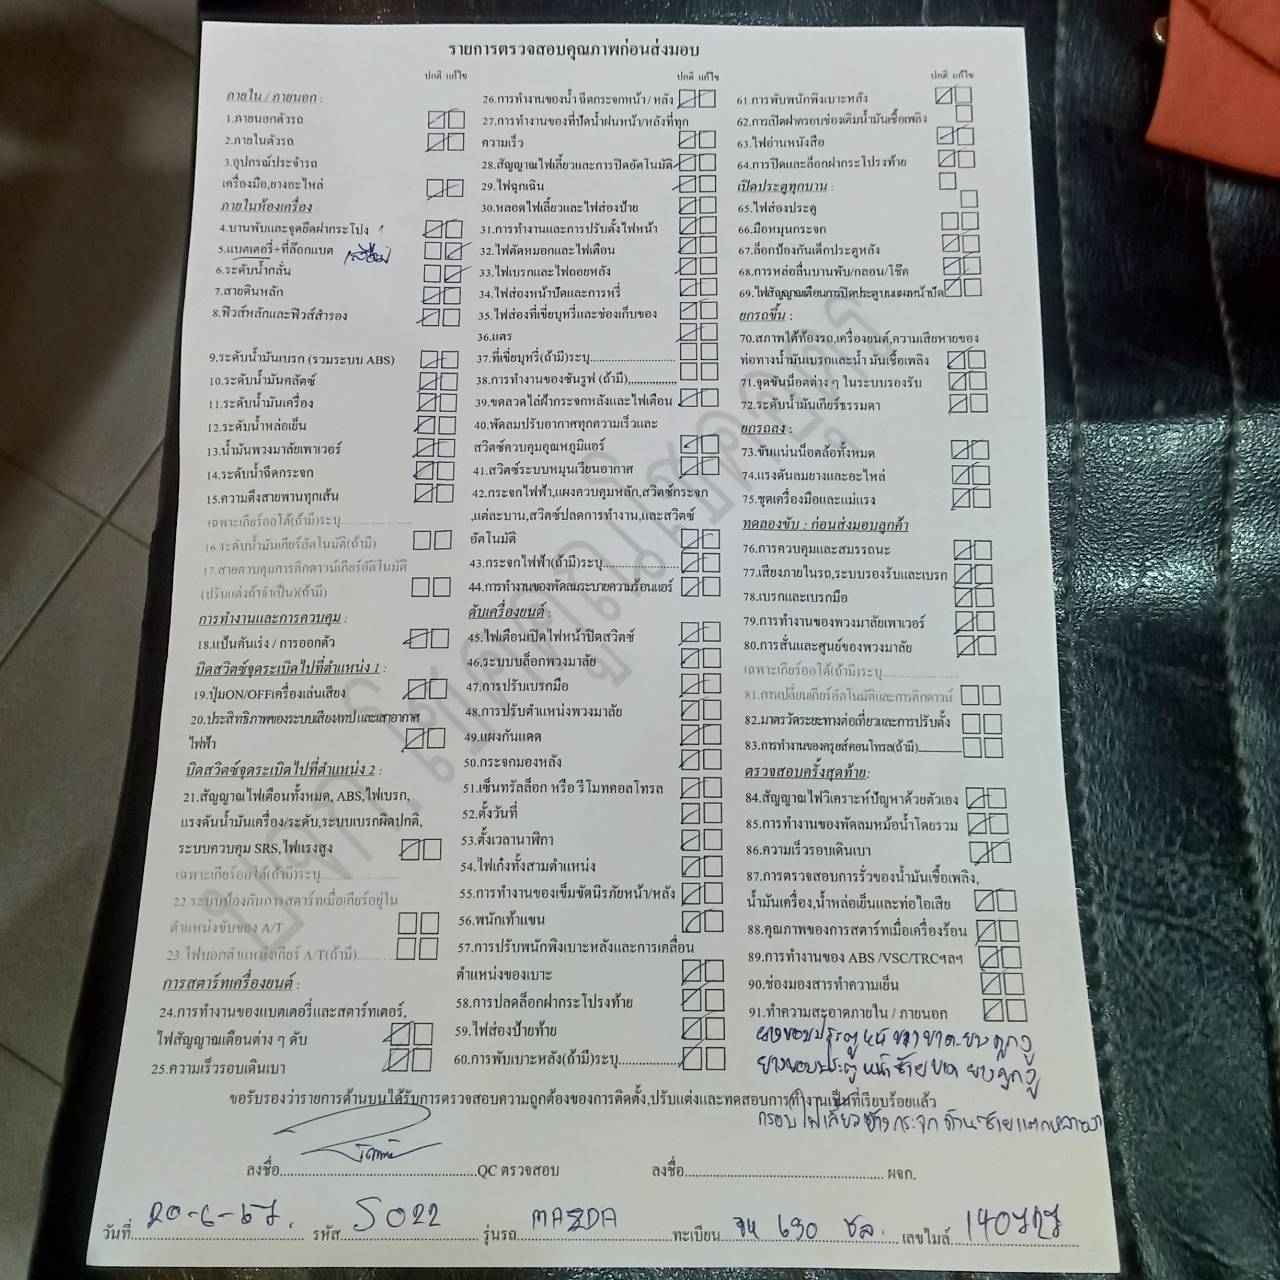 รายการตรวจสอบคุณภาพก่อนส่งมอบ
ปกติ แก้ไข
ภายใน / ภายนอก :
1.ภายนอกตัวรถ
2.ภายในตัวรถ
3.อุปกรณ์ประจำรถ
เครื่องมือ,ยางอะไหล่
ภายในห้องเครื่อง
4.บานพับและจุดยึดฝากระโปง
5.แบตเตอรี่+ที่ล๊อกแบต เสื่อม
6.ระดับน้ำกลั่น
7.สายดินหลัก
8.ฟิวส์หลักและฟิวส์สำรอง
9.ระดับน้ำมันเบรก (รวมระบบ ABS)
10.ระดับน้ำมันคลัตซ์
11.ระดับน้ำมันเครื่อง
12.ระดับน้ำหล่อเย็น
13.น้ำมันพวงมาลัยเพาเวอร์
14.ระดับน้ำฉีดกระจก
15.ความตึงสายพานทุกเส้น
เฉพาะเกียร์ออโต้(ถ้ามี)ระบุ.....................
16.ระดับน้ำมันเกียร์อัตโนมัติ(ถ้ามี)
17.สายควบคุมการคิกดาวน์เกียร์อัตโนมัติ
(ปรับแต่งถ้าจำเป็น)(ถ้ามี)
การทำงานและการควบคุม :
18.แป้นคันเร่ง / การออกตัว
บิดสวิตซ์จุดระเบิดไปที่ตำแหน่ง 1 :
19.ปุ่มON/OFFเครื่องเล่นเสียง
20.ประสิทธิภาพของระบบเสียง/เทป และเสาอากาศ
ไฟฟ้า
บิดสวิตซ์จุดระเบิดไปที่ตำแหน่ง 2 :
21.สัญญาณไฟเตือนทั้งหมด, ABS,ไฟเบรก,
แรงดันน้ำมันเครื่อง/ระดับ,ระบบเบรกผิดปกติ,
ระบบควบคุม SRS,ไฟแรงสูง
เฉพาะเกียร์ออโต้(ถ้ามี)ระบุ.....................
22 ระบบป้องกันการสตาร์ทเมื่อเกียร์อยู่ใน
ตำแหน่งขับของ A/T
23.ไฟบอกตำแหน่งเกียร์ A/T(ถ้ามี)..........
การสตาร์ทเครื่องยนต์ :
24.การทำงานของแบตเตอรี่และสตาร์ทเตอร์,
ไฟสัญญาณเตือนต่าง ๆ ดับ
25.ความเร็วรอบเดินเบา
ปกติ แก้ไข
26.การทำงานของน้ำ ฉีดกระจกหน้า / หลัง
27.การทำงานของที่ปัดน้ำฝนหน้า/หลังที่ทุก
ความเร็ว
28.สัญญาณไฟเลี้ยวและการปิดอัตโนมัติ
29.ไฟฉุกเฉิน
30.หลอดไฟเลี้ยวและไฟส่องป้าย
31.การทำงานและการปรับตั้งไฟหน้า
32.ไฟตัดหมอกและไฟเตือน
33.ไฟเบรกและไฟถอยหลัง
34.ไฟส่องหน้าปัดและการหรี่
35.ไฟส่องที่เขี่ยบุหรี่และช่องเก็บของ
36.แตร
37.ที่เขี่ยบุหรี่(ถ้ามี)ระบุ....................
38.การทำงานของซันรูฟ (ถ้ามี)................
39.ขดลวดไล่ฝ้ากระจกหลังและไฟเตือน
40.พัดลมปรับอากาศทุกความเร็วและ
สวิตซ์ควบคุมอุณหภูมิแอร์
41.สวิตซ์ระบบหมุนเวียนอากาศ
42.กระจกไฟฟ้า,แผงควบคุมหลัก,สวิตซ์กระจก
,แต่ละบาน,สวิตซ์ปลดการทำงาน,และสวิตซ์
อัตโนมัติ
43.กระจกไฟฟ้า(ถ้ามี)ระบุ..................
44.การทำงานของพัดลมระบายความร้อนแอร์
ดับเครื่องยนต์ :
45.ไฟเตือนเปิดไฟหน้าปิดสวิตซ์
46.ระบบบล็อกพวงมาลัย
47.การปรับเบรกมือ
48.การปรับตำแหน่งพวงมาลัย
49.แผงกันแดด
50.กระจกมองหลัง
51.เซ็นทรัลล็อก หรือ รีโมทคอลโทรล
52.ตั้งวันที่
53.ตั้งเวลานาฬิกา
54.ไฟเก๋งทั้งสามตำแหน่ง
55.การทำงานของเข็มขัดนิรภัยหน้า/หลัง
56.พนักเท้าแขน
57.การปรับพนักพิงเบาะหลังและการเคลื่อน
ตำแหน่งของเบาะ
58.การปลดล็อกฝากระโปรงท้าย
59.ไฟส่องป้ายท้าย
60.การพับเบาะหลัง(ถ้ามี)ระบุ..............
ปกติ แก้ไข
61.การพับพนักพิงเบาะหลัง
62.การเปิดฝาครอบช่องเติมน้ำมันเชื้อเพลิง
63.ไฟอ่านหนังสือ
64.การปิดและล็อกฝากระโปรงท้าย
เปิดประตูทุกบาน :
65.ไฟส่องประตู
66.มือหมุนกระจก
67.ล็อกป้องกันเด็กประตูหลัง
68.การหล่อลื่นบานพับ/กลอน/โช๊ค
69.ไฟสัญญาณเตือนการปิดประตูบนแผงหน้าปัด
ยกรถขึ้น :
70.สภาพใต้ท้องรถ,เครื่องยนต์,ความเสียหายของ
ท่อทางน้ำมันเบรกและน้ำ มันเชื้อเพลิง
71.จุดขันน็อตต่าง ๆ ในระบบรองรับ
72.ระดับน้ำมันเกียร์ธรรมดา
ยกรถลง :
73.ขันแน่นน็อตล้อทั้งหมด
74.แรงดันลมยางและอะไหล่
75.ชุดเครื่องมือและแม่แรง
ทดลองขับ : ก่อนส่งมอบลูกค้า
76.การควบคุมและสมรรถนะ
77.เสียงภายในรถ,ระบบรองรับและเบรก
78.เบรกและเบรกมือ
79.การทำงานของพวงมาลัยเพาเวอร์
80.การสั่นและศูนย์ของพวงมาลัย
เฉพาะเกียร์ออโต้(ถ้ามี)ระบุ.....................
81.การเปลี่ยนเกียร์อัตโนมัติและการคิกดาวน์
82.มาตรวัดระยะทางต่อเที่ยวและการปรับตั้ง
83.การทำงานของครุยส์คอนโทรล(ถ้ามี)
ตรวจสอบครั้งสุดท้าย:
84.สัญญาณไฟวิเคราะห์ปัญหาด้วยตัวเอง
85.การทำงานของพัดลมหม้อน้ำโดยรวม
86.ความเร็วรอบเดินเบา
87.การตรวจสอบการรั่วของน้ำมันเชื้อเพลิง,
น้ำมันเครื่อง,น้ำหล่อเย็นและท่อไอเสีย
88.คุณภาพของการสตาร์ทเมื่อเครื่องร้อน
89.การทำงานของ ABS /VSC/TRCฯลฯ
90.ช่องมองสารทำความเย็น
91.ทำความสะอาดภายใน / ภายนอก
ยางขอบประตู หน้า ขวา ขาด ยางงูๆ
ยางขอบประตู หน้า ซ้าย ขาด
ขอรับรองว่ารายการด้านบนได้รับการตรวจสอบความถูกต้องของการติดตั้ง,ปรับแต่งและทดสอบการทำงานเป็นที่เรียบร้อยแล้ว
กรอบไฟเลี้ยวข้างกระจก ด้านซ้ายแตก
ลงชื่อ..................................QC ตรวจสอบ ลงชื่อ.................................. ผจก.
วันที่ 20-6-67 รหัส 5022 รุ่นรถ MAZDA ทะเบียน 690 ชล. เลขไมล์ 140727